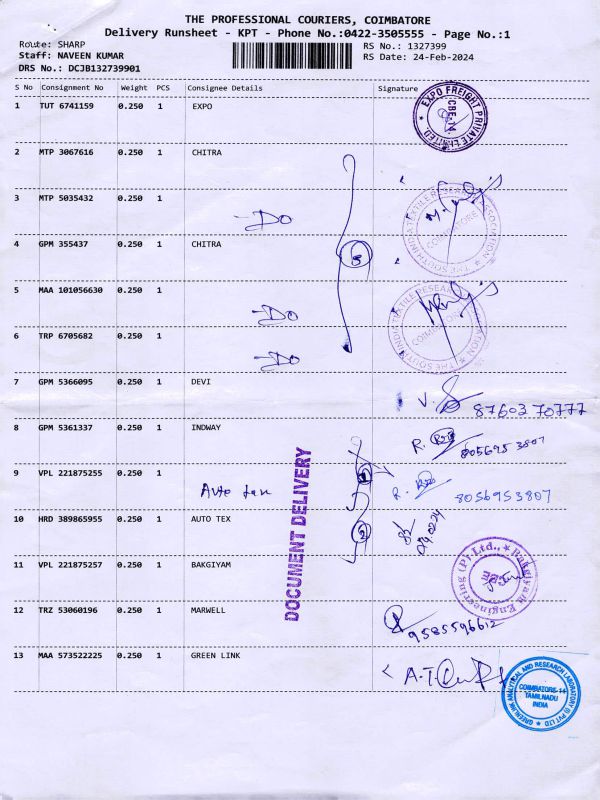 THE PROFESSIONAL COURIERS, COIMBATORE
Delivery Runsheet - KPT - Phone No.:0422-3505555 - Page No.:1
Route: SHARP
RS No.: 1327399
Staff: NAVEEN KUMAR
RS Date: 24-Feb-2024
DRS No.: DCJB132739901
S No Consignment No Weight PCS Consignee Details Signature
1 TUT 6741159 0.250 1 EXPO
EXPO FREIGHT PRIVATE LIMITED
CBE-14
2 MTP 3067616 0.250 1 CHITRA
3 MTP 5035432 0.250 1
-Do
THE SOUTH INDIA TEXTILE RESEARCH ASSOCIATION
COIMBATORE
4 GPM 355437 0.250 1 CHITRA
5
5 MAA 101056630 0.250 1
-Do
THE SOUTH INDIA TEXTILE RESEARCH ASSOCIATION
COIMBATORE
6 TRP 6705682 0.250 1
-Do
7 GPM 5366095 0.250 1 DEVI
V.
8760370777
8 GPM 5361337 0.250 1 INDWAY
R.
8056953807
9 VPL 221875255 0.250 1
Auto
R.
8056953807
DOCUMENT DELIVERY
10 HRD 389865955 0.250 1 AUTO TEX
11 VPL 221875257 0.250 1 BAKGIYAM
Bakgiyam Engineering (P) Ltd.,
12 TRZ 53060196 0.250 1 MARWELL
9585596612
13 MAA 573522225 0.250 1 GREEN LINK
A.T.
GREEN LINK ANALYTICAL AND RESEARCH LABORATORY (I) PVT LTD
COIMBATORE-14
TAMILNADU
INDIA